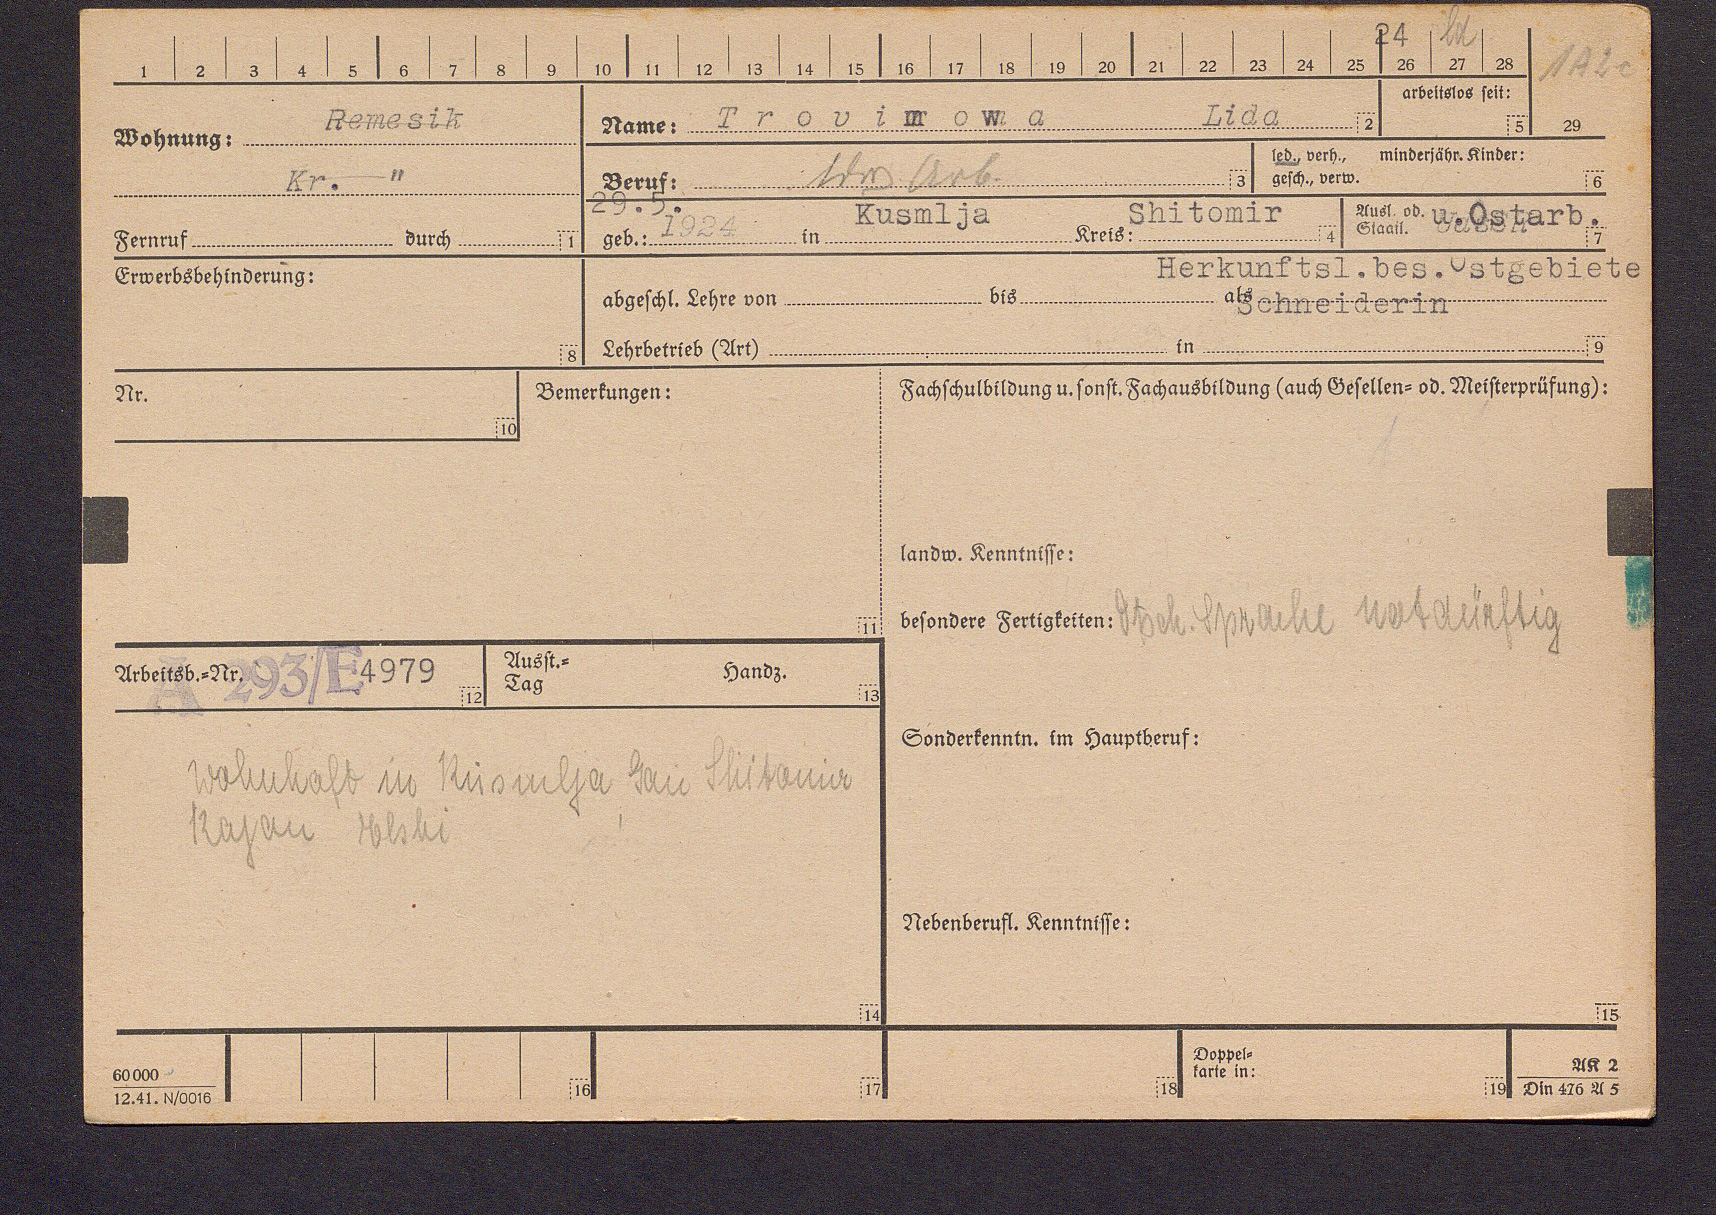 24 ld
1 2 3 4 5 6 7 8 9 10 11 12 13 14 15 16 17 18 19 20 21 22 23 24 25 26 27 28 1A2c
Wohnung: Remesik
Kr. "
Fernruf durch 1
Name: Trovimowa Lida 2
arbeitslos seit: 5
29
Beruf: ldw Arb. 3
led., verh., minderjähr. Kinder:
gesch., verw. 6
29.5.
geb.: 1924 in Kusmlja Kreis: Shitomir 4
Ausl. od. u. Ostarb.
Staatl. 7
Erwerbsbehinderung: 8
Herkunftsl.bes.Ostgebiete
abgeschl. Lehre von bis als Schneiderin
Lehrbetrieb (Art) in 9
Nr. 10
Bemerkungen: 11
Fachschulbildung u. sonst. Fachausbildung (auch Gesellen- od. Meisterprüfung):
landw. Kenntnisse:
besondere Fertigkeiten: Dtsch. Sprache notdürftig
Arbeitsb.-Nr. A 293/E4979 12
Ausst.-
Tag Handz. 13
Sonderkenntn. im Hauptberuf:
wohnhaft in Kusmlja Gau Shitomir
Rajan
Nebenberufl. Kenntnisse:
14
15
60000
12.41. N/0016
16
17
18
Doppel-
karte in: 19
AK 2
Din 476 A 5